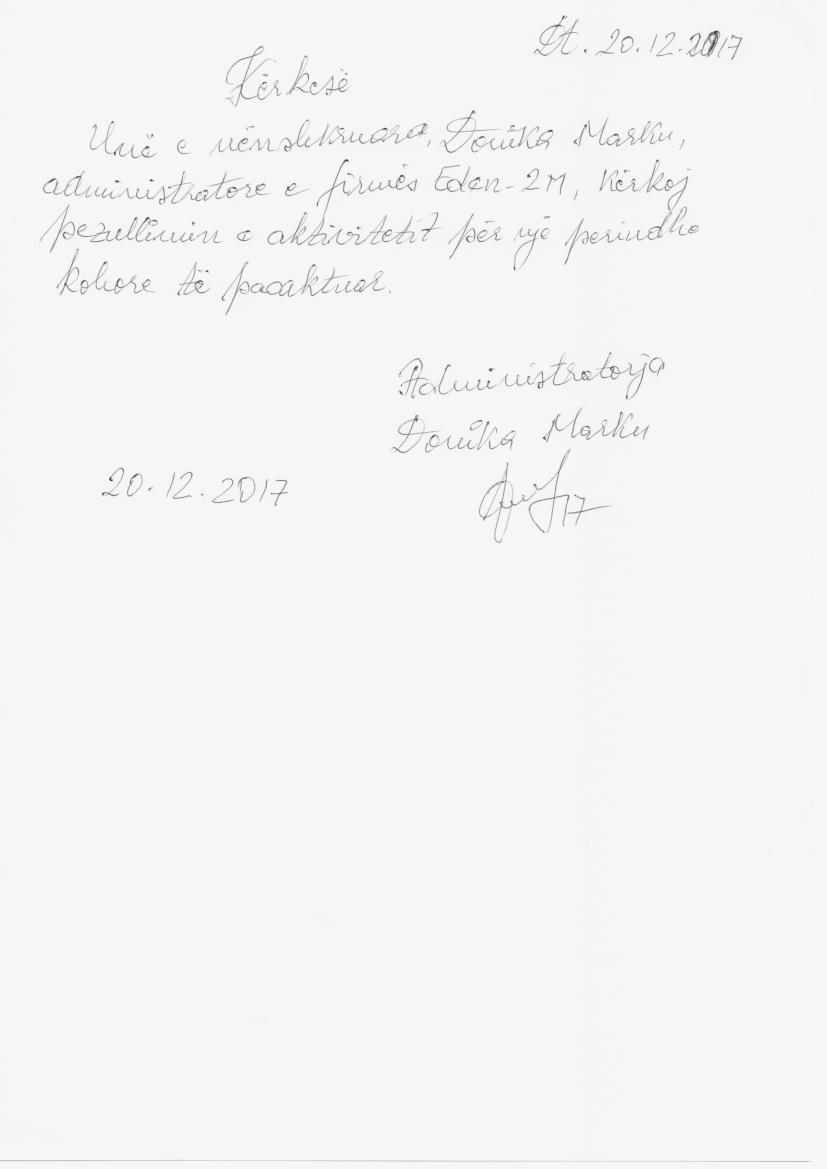 Dt. 20.12.2017
Kërkesë
Unë e nënshkruara, Donika Marku,
administratore e firmës Eden-2M, kërkoj
pezullimin e aktivitetit për një periudhe
kohore të pacaktuar.
Administratorja
Donika Marku
20.12.2017